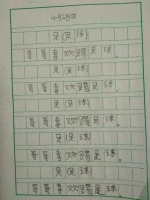 4月28日
足(足球)
哥哥喜欢踢足球。
足(足球)
哥哥喜欢踢足球。
足(足球)
哥哥喜欢踢足球。
足(足球)
哥哥喜欢踢足球。
足(足球)
哥哥喜欢踢足球。